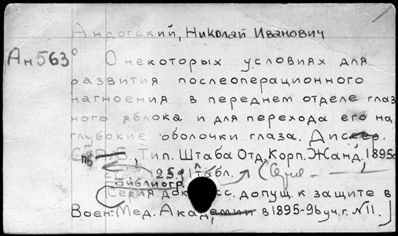 Андогский, Николай Иванович
Ан563
О некоторых условиях для
развития послеоперационного
нагноения в переднем отделе глаз
ного яблока и для перехода его на
глубокие оболочки глаза. Диссер.
СПБ, Тип. Штаба Отд. Корп. Жанд. 1895
259 1 табл.
библиогр.
(Серия докт. дисс. допущ. к защите в
Воен. Мед. Академии в 1895-96 уч. г. N 11.)